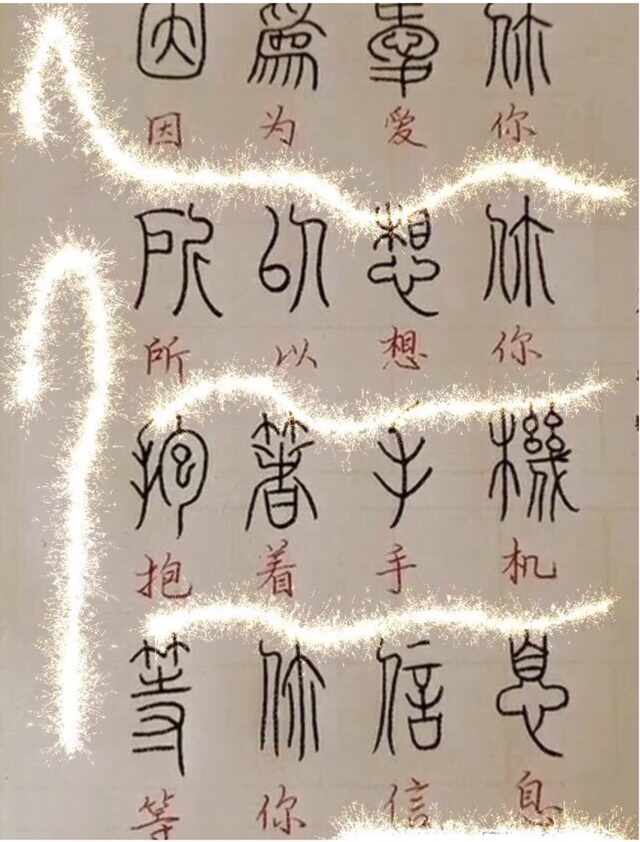 因為愛你
因为爱你
所以想你
所以想你
抱著手機
抱着手机
等你信息
等你信息